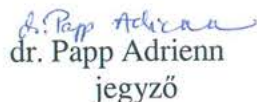 dr. Papp Adrienn
dr. Papp Adrienn
jegyző